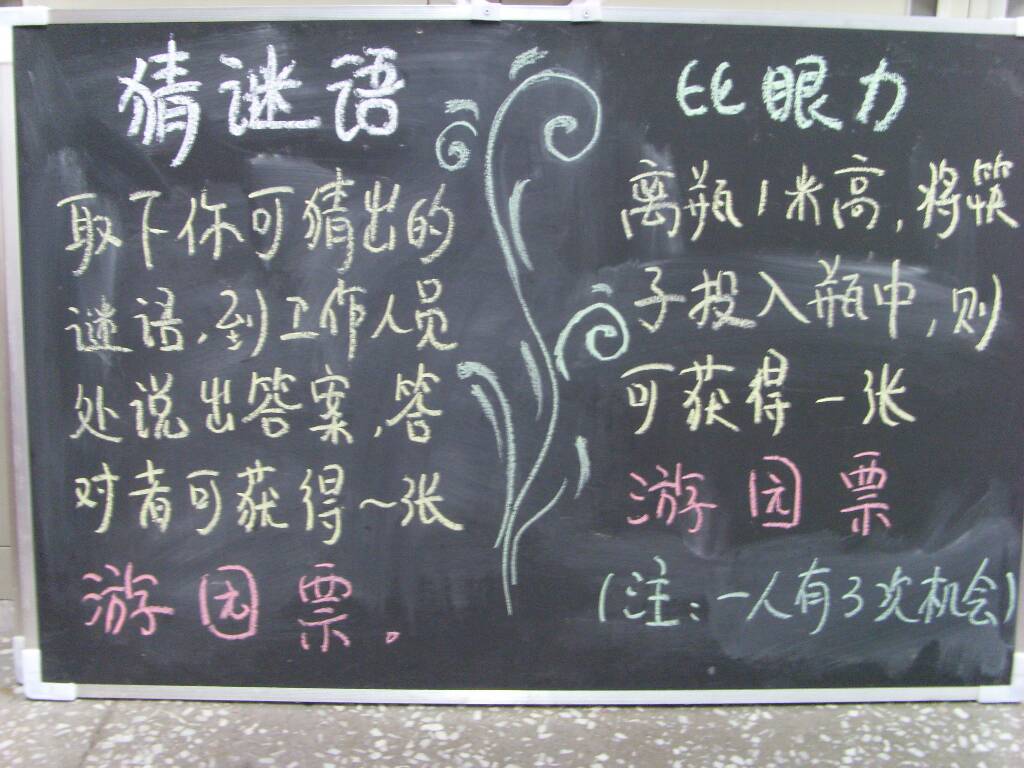 猜谜语
取下你可猜出的
谜语,到工作人员
处说出答案,答
对者可获得一张
游园票。
比眼力
离瓶1米高,将筷
子投入瓶中,则
可获得一张
游园票
(注:一人有3次机会)